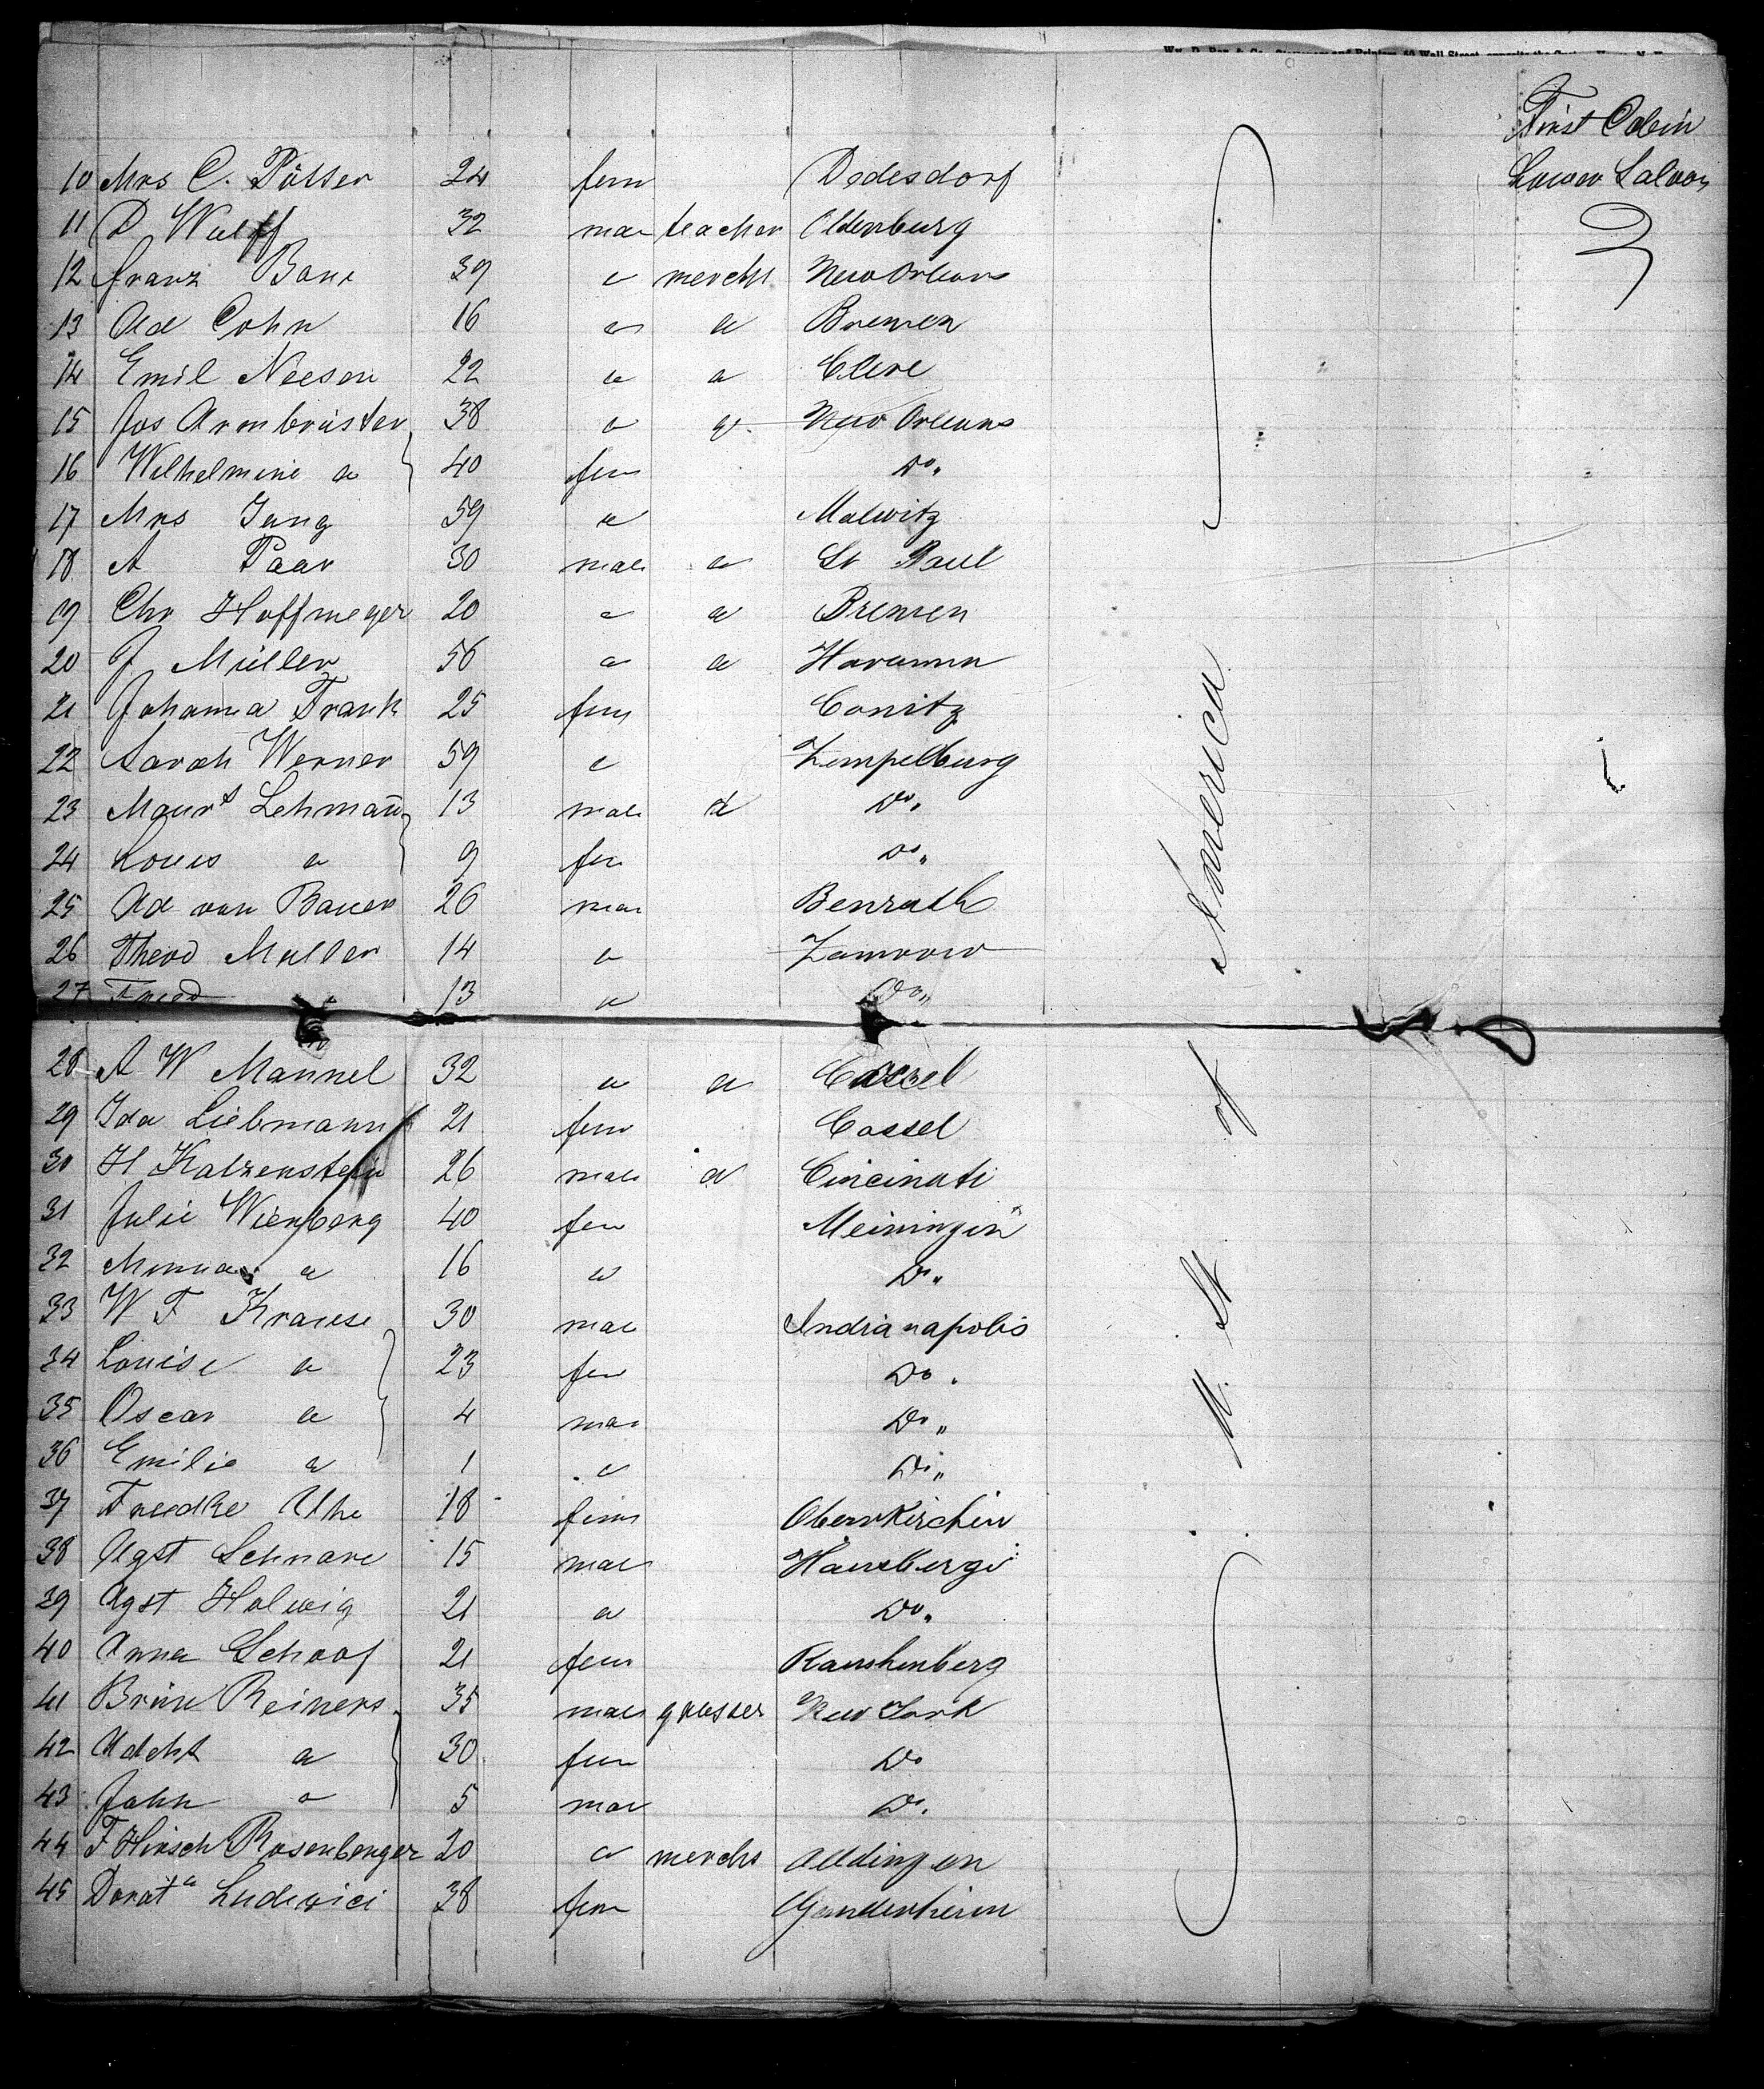 First Cabin
Lower Saloon
10 Mrs C. Pütter 24 fem Dedesdorf
11 D Wulff 32 mae teacher Oldenburg
12 Franz 39 " mercht New Orleans
13 Ad Cohn 16 " " Bremen
14 Emil Neesen 22 " " Cleve
15 Jos Armbrüster 38 " " New Orleans
16 Wilhelmine " 40 fem Do.
17 Mrs Jung 59 " Malwitz
18 A Paar 30 mae " St Paul
19 Chr Hoffmeyer 20 " " Bremen
20 J Müller 56 " " Havanna
21 Johanna Frank 25 fem Conitz
22 Sarah Werner 59 " Zempelburg
23 Maurt Lehmann 13 mae " Do.
24 Louis " 9 fem Do.
25 Ad von Bauer 26 mae Benrath
26 Theod Muller 14 " Zamrow
27 Fried " 13 " Do.
28 A W Mannel 32 " " Cassel
29 Ida Liebmann 21 fem Cassel
30 H Katzenstein 26 mae " Cincinati
31 Julie Wienberg 40 fem Meiningen
32 Minna " 16 " Do.
33 W F Krause 30 mae Indianapolis
34 Louise " 23 fem Do.
35 Oscar " 4 mae Do.
36 Emilie " 1 " Do.
37 Friedke Uhe 18 fem Obernkirchen
38 Agst Schnare 15 mae Hausberge
39 Agst Holwig 21 " Do.
40 Anna Schoof 21 fem Raushenberg
41 Brüne Reiners 35 mae grosser New York
42 Adeht " 30 fem Do
43 John " 5 mae Do.
44 F Hirsch Rosenberger 20 " mercht Aldingen
45 Dorota Ludewici 38 fem Ganderheim
U. St. of America